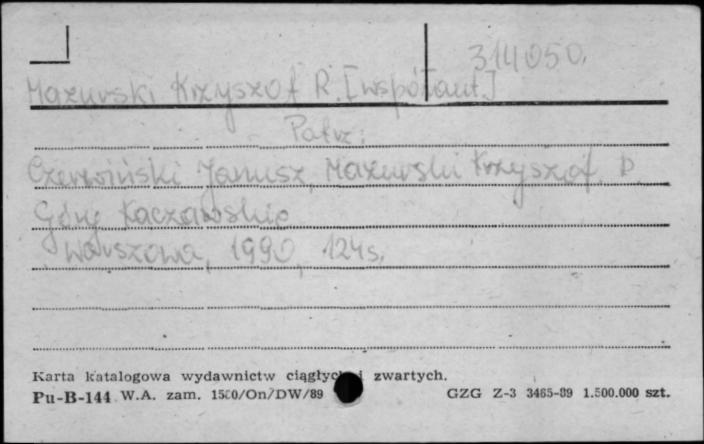 314050.
Mazurski Krzysztof R. [współaut.]
Patrz:
Czerwiński Janusz, Mazurski Krzysztof R.
Góry Kaczawskie
Warszawa, 1990, 124 s.
Karta katalogowa wydawnictw ciągłych i zwartych.
Pu-B-144 W.A. zam. 1500/On/DW/89 GZG Z-3 3465-89 1.500.000 szt.